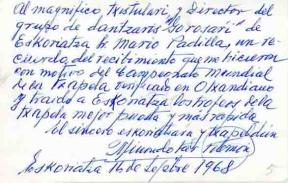 Al magnífico txistulari y Director del
grupo de dantzaris "Sorosarri" de
Eskoriatza D. Mario Padilla, un re-
cuerdo del recibimiento que me hicieron
con motivo del Campeonato Mundial
de la Txapela verificado en Otxandiano
y traido a Eskoriatza los trofeos de la
txapela mejor puesta y mas rapida
El sincero eskonzbara y txapeldun
Eskoriatza 16 de 1968
5